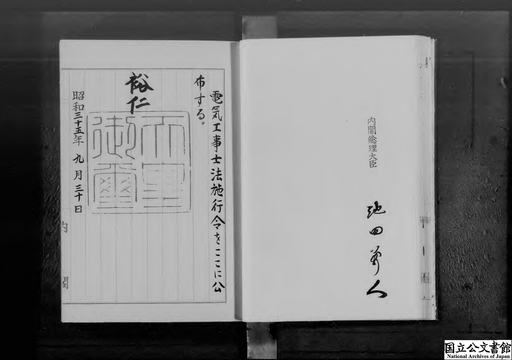 電気工事士法施行令をここに公
布する。
裕仁
天皇
御璽
昭和三十五年九月三十日
内閣
内閣総理大臣
池田勇人
国立公文書館
National Archives of Japan